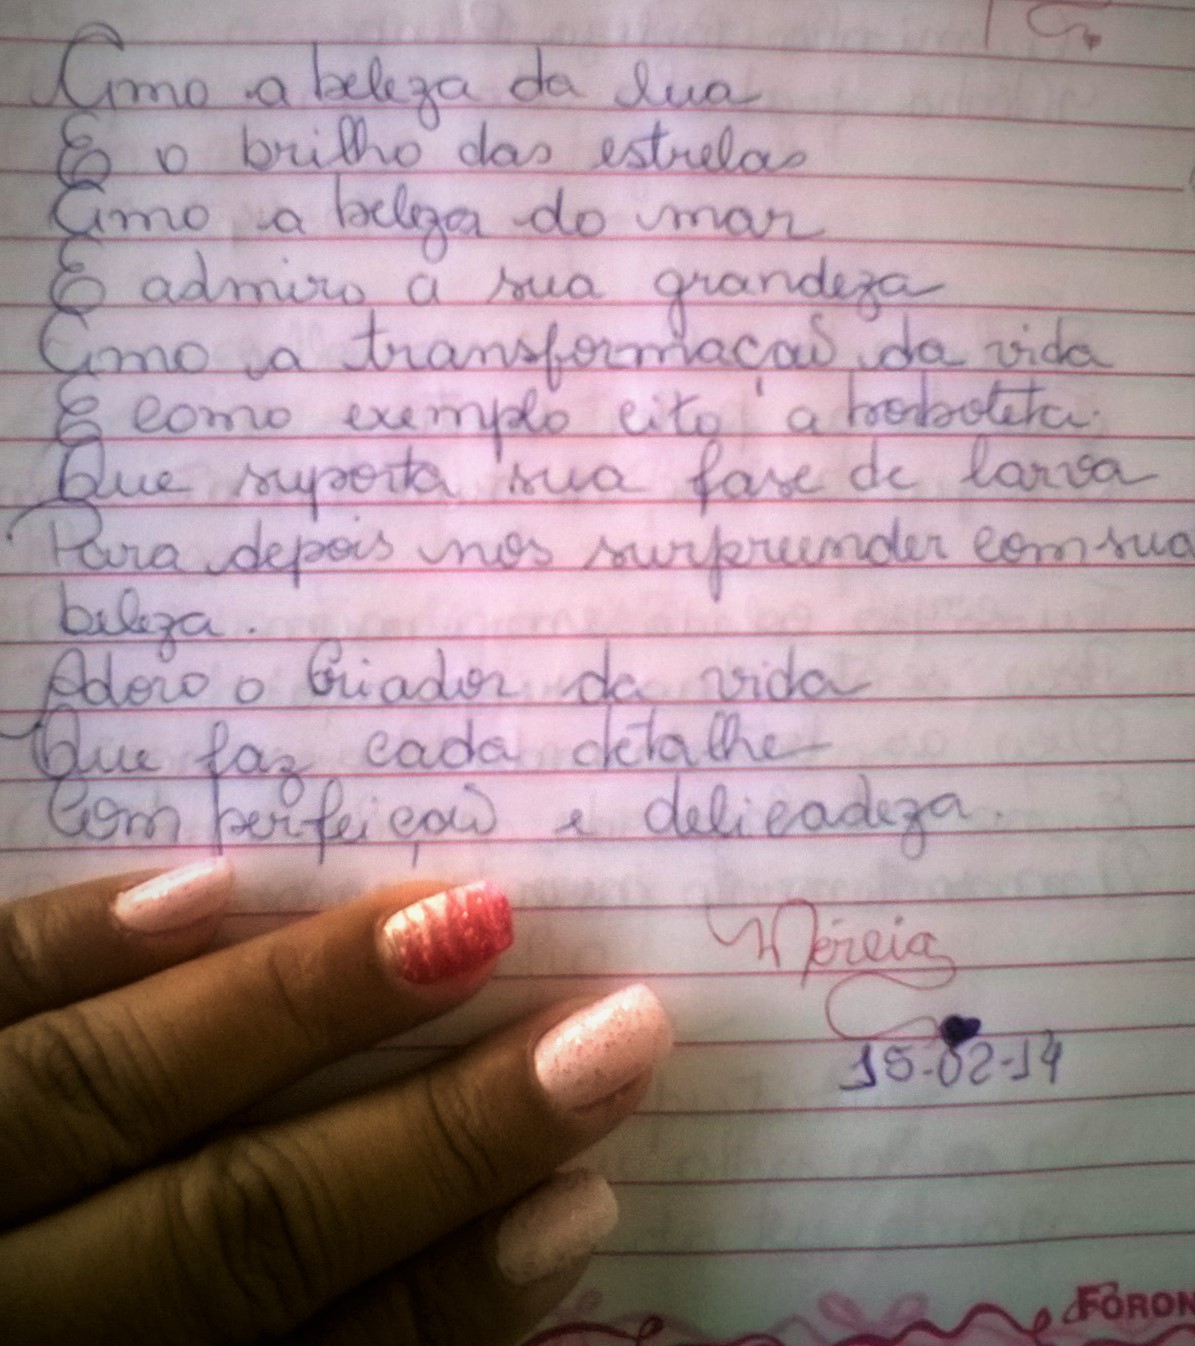 Amo a beleza da lua
E o brilho das estrelas
Amo a beleza do mar
E admiro a sua grandeza
Amo a transformação da vida
E como exemplo cito a borboleta.
Que suporta sua fase de larva
Para depois nos surpreender com sua
beleza.
Adoro o Criador da vida
Que faz cada detalhe
Com perfeição e delicadeza.
Mércia
15-02-14
FORON